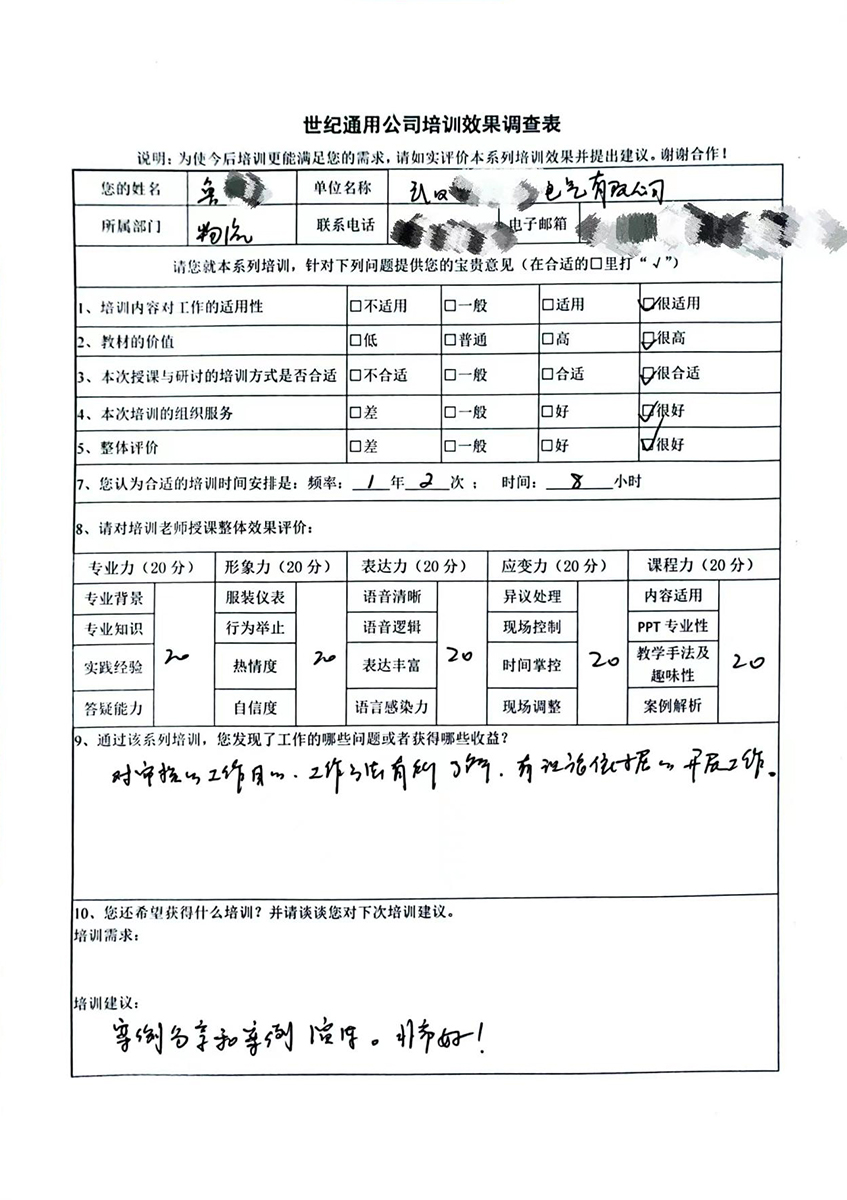 世纪通用公司培训效果调查表
说明：为使今后培训更能满足您的需求，请如实评价本系列培训效果并提出建议。谢谢合作！
您的姓名 单位名称 电气有限公司
所属部门 物流 联系电话 电子邮箱
请您就本系列培训，针对下列问题提供您的宝贵意见（在合适的□里打“√”）
1、培训内容对工作的适用性 □不适用 □一般 □适用 ☑很适用
2、教材的价值 □低 □普通 □高 ☑很高
3、本次授课与研讨的培训方式是否合适 □不合适 □一般 □合适 ☑很合适
4、本次培训的组织服务 □差 □一般 □好 ☑很好
5、整体评价 □差 □一般 □好 ☑很好
7、您认为合适的培训时间安排是：频率：1年2次； 时间：8小时
8、请对培训老师授课整体效果评价：
专业力（20分） 形象力（20分） 表达力（20分） 应变力（20分） 课程力（20分）
专业背景 服装仪表 语音清晰 异议处理 内容适用
专业知识 行为举止 语音逻辑 现场控制 PPT专业性
实践经验 20 热情度 20 表达丰富 20 时间掌控 20 教学手法及 20
趣味性
答疑能力 自信度 语言感染力 现场调整 案例解析
9、通过该系列培训，您发现了工作的哪些问题或者获得哪些收益？
对审核的工作目的、工作方法有所了解，有理论依据的开展工作。
10、您还希望获得什么培训？并请谈谈您对下次培训建议。
培训需求：
培训建议：
案例分享和案例演练。非常好！